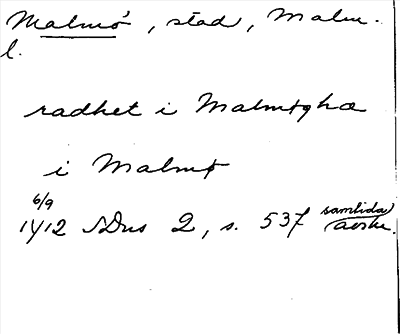 Malmö, stad, Malm.
l.
radhet i Malmøghæ
i Malmø
6/9
1412 SDns 2, s. 537 samtida avskr.